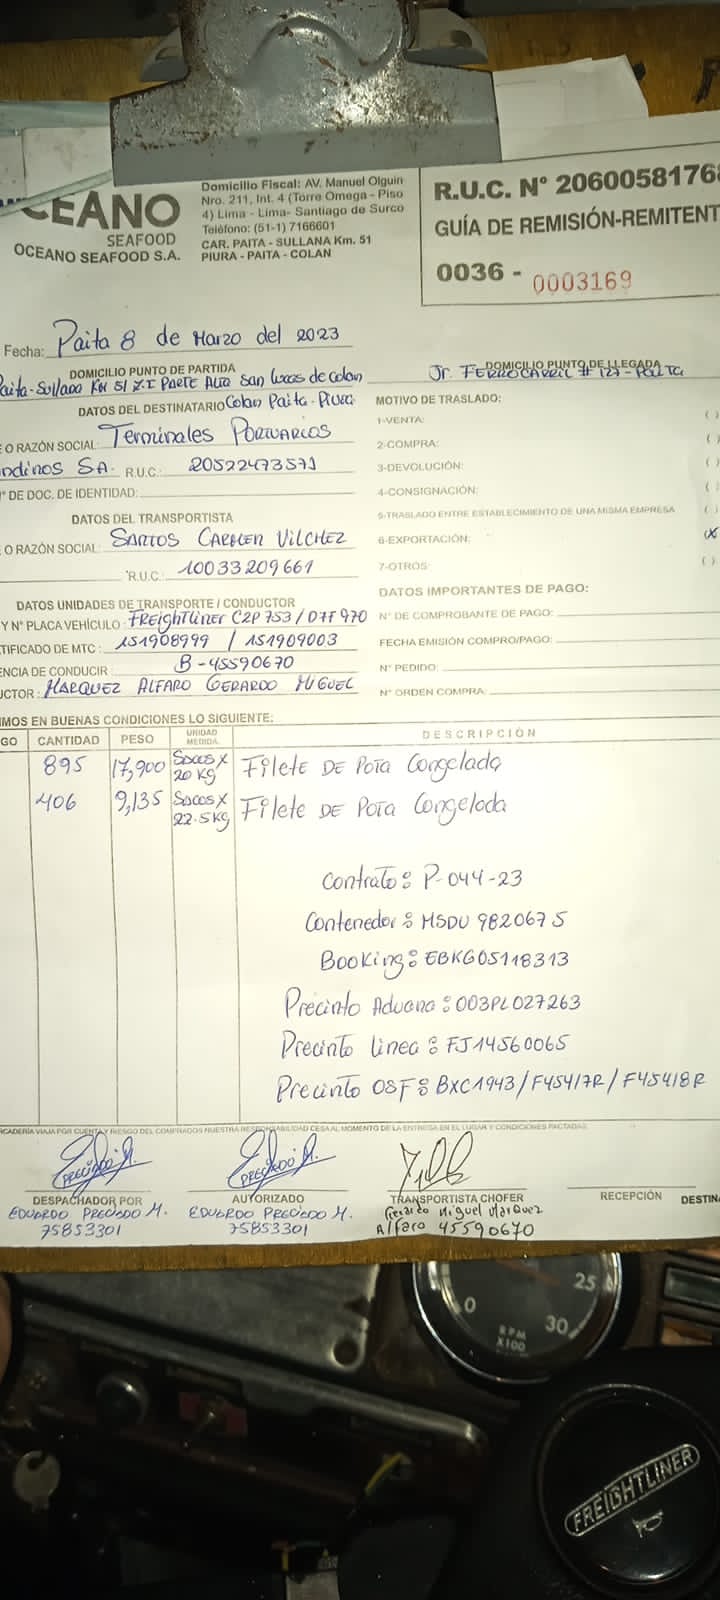 OCEANO
SEAFOOD
OCEANO SEAFOOD S.A.
Domicilio Fiscal: AV. Manuel Olguin
Nro. 211, Int. 4 (Torre Omega - Piso
4) Lima - Lima- Santiago de Surco
Teléfono: (51-1) 7166601
CAR. PAITA - SULLANA Km. 51
PIURA - PAITA - COLAN
R.U.C. N° 2060058176
GUÍA DE REMISIÓN-REMITENT
0036 - 0003169
Fecha: Paita 8 de Marzo del 2023
DOMICILIO PUNTO DE PARTIDA
Paita-Sullana KM 51 Z.I PARTE Alta San Lucas de Colan
Colan Paita-Piura
DOMICILIO PUNTO DE LLEGADA
Jr. FERROCARRIL # 127 - PAITA
DATOS DEL DESTINATARIO
E O RAZÓN SOCIAL: Terminales Portuarios
ndinos SA. R.U.C.: 20522473571
° DE DOC. DE IDENTIDAD:
DATOS DEL TRANSPORTISTA
E O RAZÓN SOCIAL: SANTOS CARMEN VILCHEZ
R.U.C.: 10033209661
DATOS UNIDADES DE TRANSPORTE / CONDUCTOR
Y N° PLACA VEHÍCULO: FREIGHTLINER C2P 753 / D7F 970
TIFICADO DE MTC: 151908999 / 151909003
ENCIA DE CONDUCIR: B-45590670
UCTOR: MARQUEZ ALFARO GERARDO MIGUEL
MOTIVO DE TRASLADO:
1-VENTA: ( )
2-COMPRA: ( )
3-DEVOLUCIÓN: (
4-CONSIGNACIÓN: (
5-TRASLADO ENTRE ESTABLECIMIENTO DE UNA MISMA EMPRESA ( )
6-EXPORTACIÓN: (X
7-OTROS: ( )
DATOS IMPORTANTES DE PAGO:
N° DE COMPROBANTE DE PAGO:
FECHA EMISIÓN COMPRO/PAGO:
N° PEDIDO:
N° ORDEN COMPRA:
IMOS EN BUENAS CONDICIONES LO SIGUIENTE:
GO CANTIDAD PESO UNIDAD MEDIDA DESCRIPCIÓN
895 17,900 Sacos x 20 KG Filete DE POTA Congelada
406 9,135 Sacos x 22.5KG Filete DE POTA Congelada
Contrato: P-044-23
Contenedor: MSDU 982067 5
Booking: EBKG05118313
Precinto Aduana: 003PL027263
Precinto Linea: FJ14560065
Precinto OSF: BXC1943/F45417R/F45418R
CADERÍA VIAJA POR CUENTA Y RIESGO DEL COMPRADOS NUESTRA RESPONSABILIDAD CESA AL MOMENTO DE LA ENTREGA EN EL LUGAR Y CONDICIONES PACTADAS.
DESPACHADOR POR
EDUARDO PRECIADO M.
75853301
AUTORIZADO
EDUARDO PRECIADO M.
75853301
TRANSPORTISTA CHOFER
Gerardo Miguel Marquez
Alfaro 45590670
RECEPCIÓN
DESTINA
0
25
30
RPM
X100
FREIGHTLINER